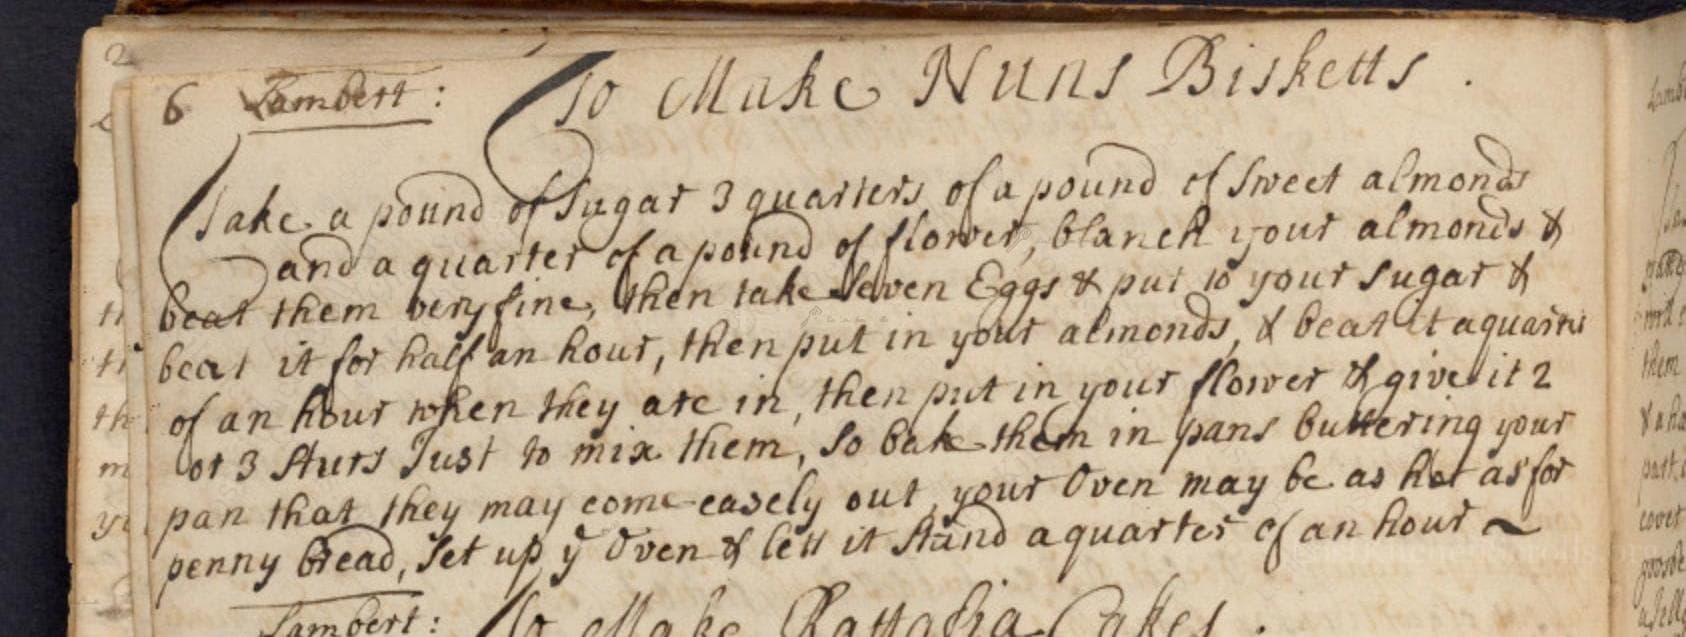 6 Lambert: To Make Nuns Bisketts.
Take a pound of Sugar 3 quarters of a pound of Sweet almonds
and a quarter of a pound of flower, blanch your almonds &
beat them very fine, then take Seven Eggs & put to your Sugar &
beat it for half an hour, then put in your almonds, & beat it a quarter
of an hour when they are in, then put in your flower & give it 2
or 3 Sturs Just to mix them, So bake them in pans buttering your
pan that they may come easely out, your Oven may be as hot as for
penny bread, Set up ye Oven & lett it Stand a quarter of an hour ~
Lambert: To Make Rattafia Cakes.